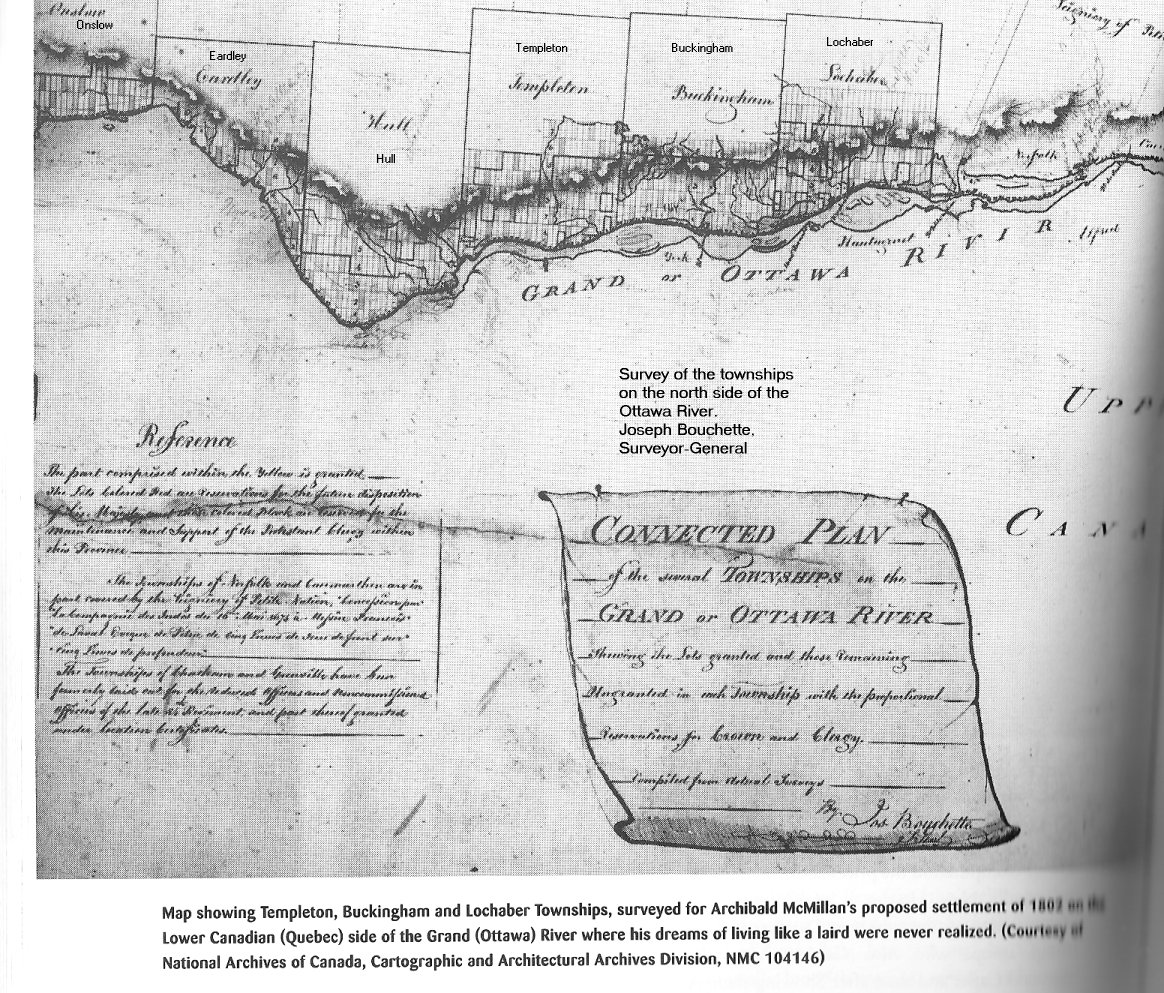 Onslow
Onslow
Eardley
Eardley
Hull
Hull
Templeton
Templeton
Buckingham
Buckingham
Lochaber
Lochaber
Seigniory of
Norfolk
York
Hawksbury
Alfred
GRAND or OTTAWA RIVER
Survey of the townships
on the north side of the
Ottawa River.
Joseph Bouchette,
Surveyor-General
UPP
CANA
Reference
The part comprised within the Yellow is granted
The Lots colored Red are Reservations for the future disposition
of His Majesty and those colored Black are Reserves for the
maintenance and Support of the Protestant Clergy within
this Province
The Townships of Norfolk and are in
part covered by the Seigniory of Petite Nation,
La Compagnie des Indes
de Laval
de profondeur
The Townships of Chatham and Grenville have been
formerly laid out for the reduced Officers and noncommissioned
Officers of the late Regiment, and part thereof granted
under Location Certificates.
CONNECTED PLAN
of the several TOWNSHIPS on the
GRAND or OTTAWA RIVER
Shewing the Lots granted and those Remaining
Ungranted in each Township with the proportional
Reservations for Crown and Clergy.
Compiled from Actual Surveys
By Jos Bouchette
Map showing Templeton, Buckingham and Lochaber Townships, surveyed for Archibald McMillan's proposed settlement of 1802 on the
Lower Canadian (Quebec) side of the Grand (Ottawa) River where his dreams of living like a laird were never realized. (Courtesy of
National Archives of Canada, Cartographic and Architectural Archives Division, NMC 104146)